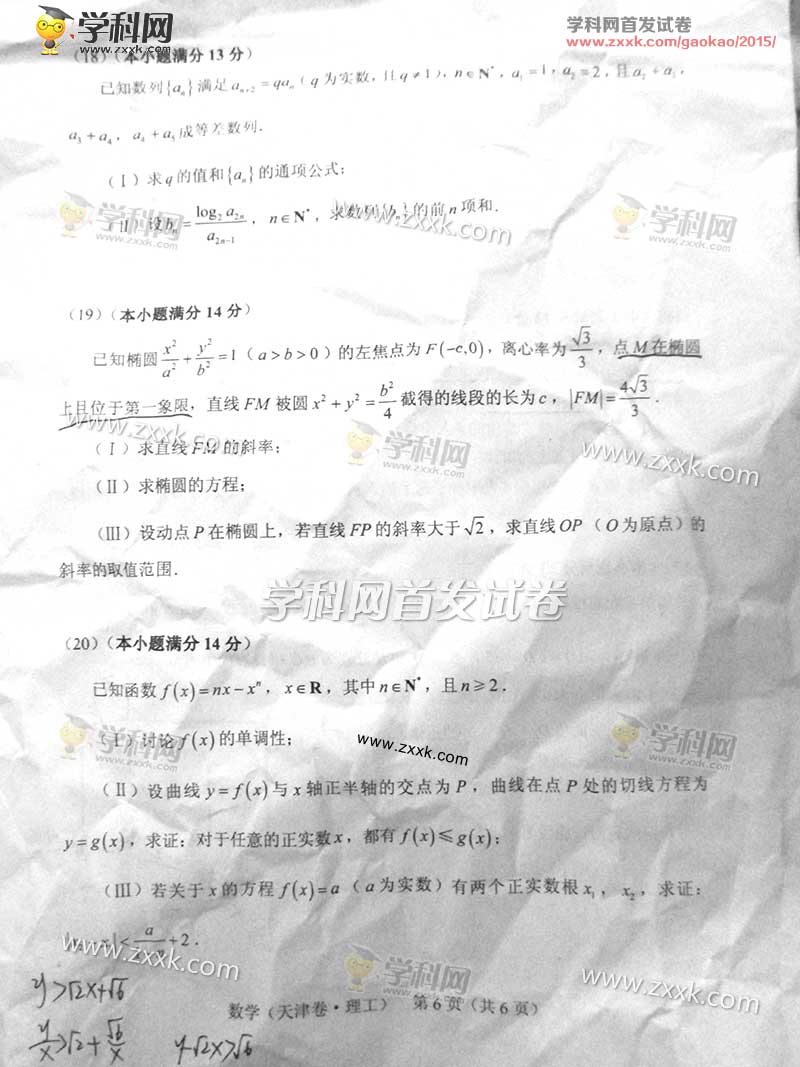 学科网
www.zxxk.com
学科网首发试卷
www.zxxk.com/gaokao/2015/
(18)(本小题满分 13 分)
已知数列{aₙ}满足 aₙ₊₂ = qaₙ ( q 为实数, 且 q ≠ 1 ), n∈N*, a₁ = 1, a₂ = 2, 且 a₂ + a₃,
a₃ + a₄, a₄ + a₅ 成等差数列.
(Ⅰ) 求 q 的值和{aₙ}的通项公式;
(Ⅱ) 设 bₙ = log₂ a₂ₙ / a₂ₙ₋₁, n∈N*, 求数列{bₙ}的前 n 项和.
学科网
www.zxxk.com
(19)(本小题满分 14 分)
已知椭圆 x²/a² + y²/b² = 1 ( a > b > 0 ) 的左焦点为 F(−c,0), 离心率为 √3/3, 点 M 在椭圆
上且位于第一象限, 直线 FM 被圆 x² + y² = b²/4 截得的线段的长为 c, |FM| = 4√3/3.
www.zxxk.com
学科网
www.zxxk.com
(Ⅰ) 求直线 FM 的斜率;
(Ⅱ) 求椭圆的方程;
(Ⅲ) 设动点 P 在椭圆上, 若直线 FP 的斜率大于 √2, 求直线 OP ( O 为原点) 的
斜率的取值范围.
学科网首发试卷
(20)(本小题满分 14 分)
已知函数 f(x) = nx − xⁿ, x∈R, 其中 n∈N*, 且 n ≥ 2.
学科网
学科网
(Ⅰ) 讨论 f(x) 的单调性;
www.zxxk.com
(Ⅱ) 设曲线 y = f(x) 与 x 轴正半轴的交点为 P, 曲线在点 P 处的切线方程为
y = g(x), 求证: 对于任意的正实数 x, 都有 f(x) ≤ g(x);
(Ⅲ) 若关于 x 的方程 f(x) = a ( a 为实数) 有两个正实数根 x₁, x₂, 求证:
< a/ + 2.
www.zxxk.com
学科网
www.zxxk.com
y>√2x+√6
数学 (天津卷·理工) 第 6 页 (共 6 页)
y/x>√2+√6/x y-√2x>√6